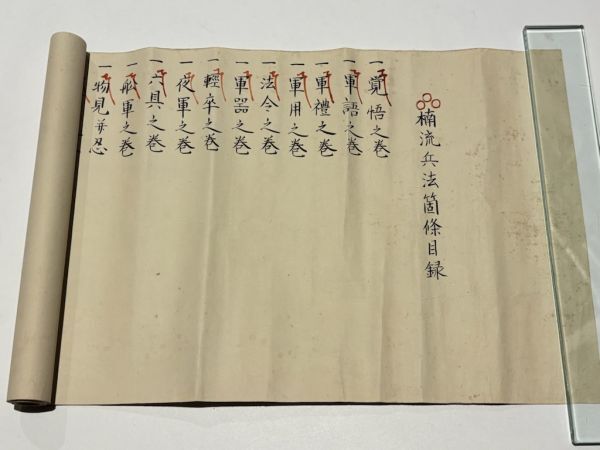 楠流兵法箇條目録
一覚悟之巻
一軍語之巻
一軍禮之巻
一軍用之巻
一法令之巻
一軍器之巻
一輕卒之巻
一夜軍之巻
一六具之巻
一舩軍之巻
一物見并忍